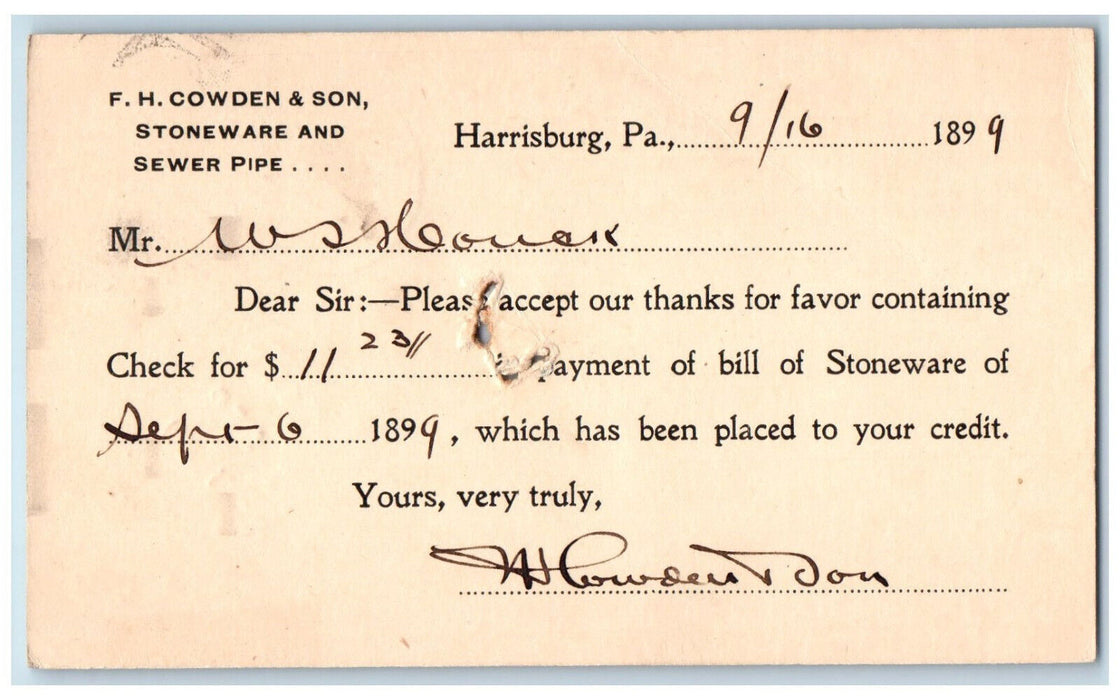 F. H. COWDEN & SON,
STONEWARE AND
SEWER PIPE....
Harrisburg, Pa., 9/16 1899
Mr. W S Houck
Dear Sir:—Please accept our thanks for favor containing
Check for $ 11 23 in payment of bill of Stoneware of
Sept 6 1899, which has been placed to your credit.
Yours, very truly,
F H Cowden & Son